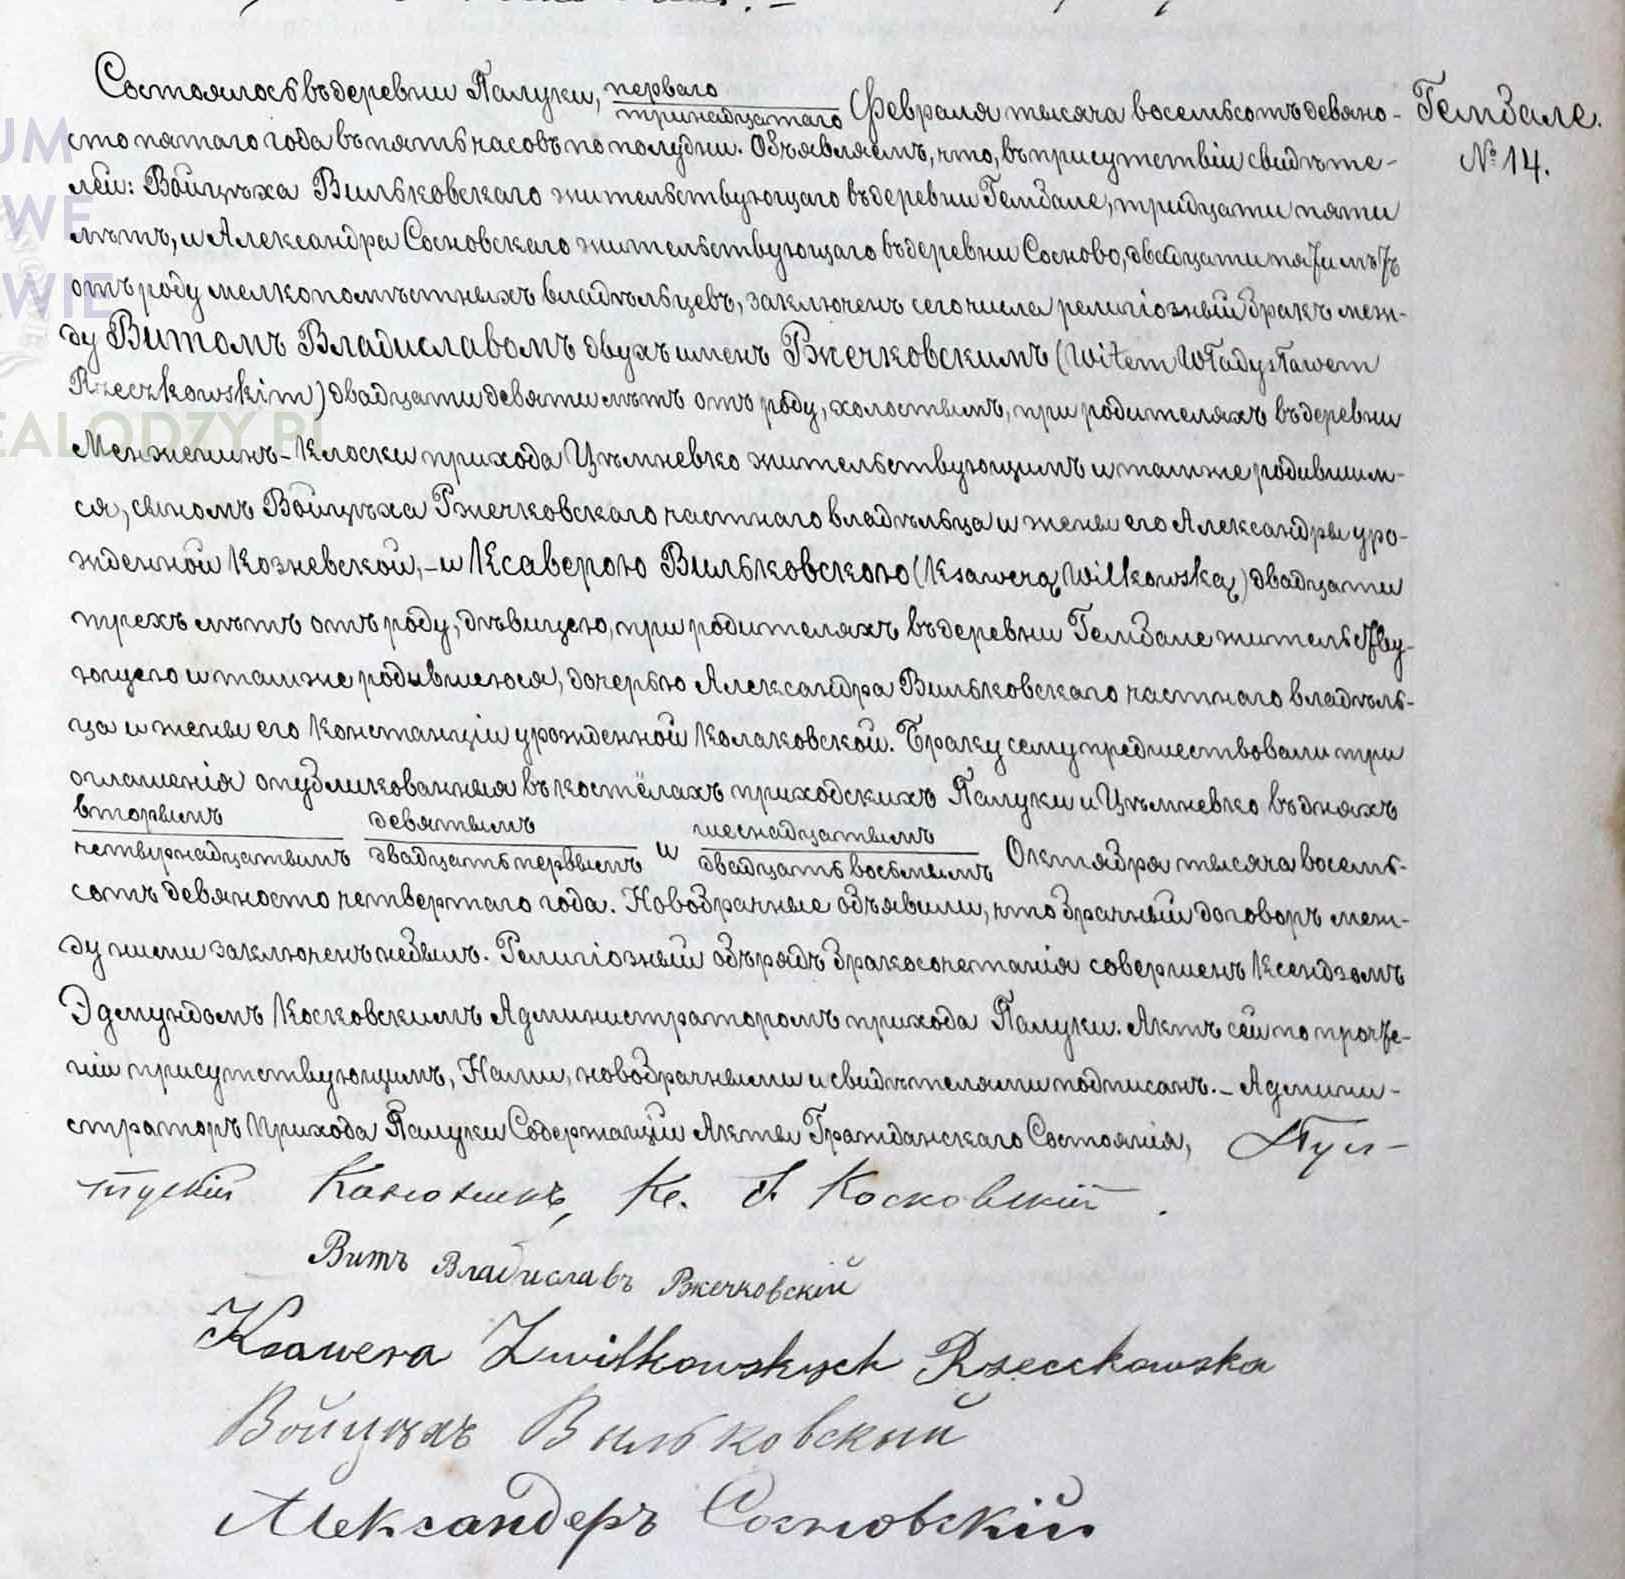 Гемзале.
№ 14.
Состоялось въ деревни Палуки, перваго/тринадцатаго Февраля тысяча восемьсотъ девяно-
сто пятаго года въ пять часовъ по полудни. Объявляемъ, что, въ присутствіи свидѣте-
лей: Войцѣха Вильковскаго жительствующаго въ деревни Гемзале, тридцати пяти
лѣтъ, и Александра Сосновскаго жительствующаго въ деревни Сосново, двадцати пяти лѣтъ
отъ роду мелкопомѣстныхъ владѣльцевъ, заключенъ сего числа религіозный бракъ меж-
ду Витомъ Владиславомъ двухъ именъ Ржечковскимъ (Witem Władysławem
Rzeczkowskim) двадцати девяти лѣтъ отъ роду, холостымъ, при родителяхъ въ деревни
Менженинъ-Клоски прихода Цѣмневко жительствующимъ и тамже родившим-
ся, сыномъ Войцѣха Ржечковскаго частнаго владѣльца и жены его Александры уро-
жденной Козневской, – и Ксаверою Вильковскою (Ksawerą Wilkowską) двадцати
трехъ лѣтъ отъ роду, дѣвицею, при родителяхъ въ деревни Гемзале жительству-
ющею и тамже родившеюся, дочерью Александра Вильковскаго частнаго владѣль-
ца и жены его Констанціи урожденной Колаковской. Браку сему предшествовали три
оглашенія опубликованныя въ костёлахъ приходскихъ Палуки и Цѣмневко въ дняхъ
вторымъ/четырнадцатымъ девятымъ/двадцать первымъ и шеснадцатымъ/двадцать восьмымъ Октября тысяча восемь-
сотъ девяносто четвертаго года. Новобрачные объявили, что брачный договоръ меж-
ду ними заключенъ небылъ. Религіозный обърядъ бракосочетанія совершенъ Ксендзомъ
Эдмундомъ Косковскимъ Администраторомъ прихода Палуки. Актъ сей по прочте-
ніи присутствующимъ, Нами, новобрачными и свидѣтелями подписанъ. – Админи-
страторъ Прихода Палуки Содержащій Акты Гражданскаго Состоянія, Пул-
тускій Каноникъ, Кс. Э Косковскій.
Витъ Владиславъ Ржечковскій
Ksawera Zwilkowskych Rzeczkowska
Войцѣхъ Вильковскый
Александеръ Сосновскій
UM
WE
WIE
EALODZY.PL